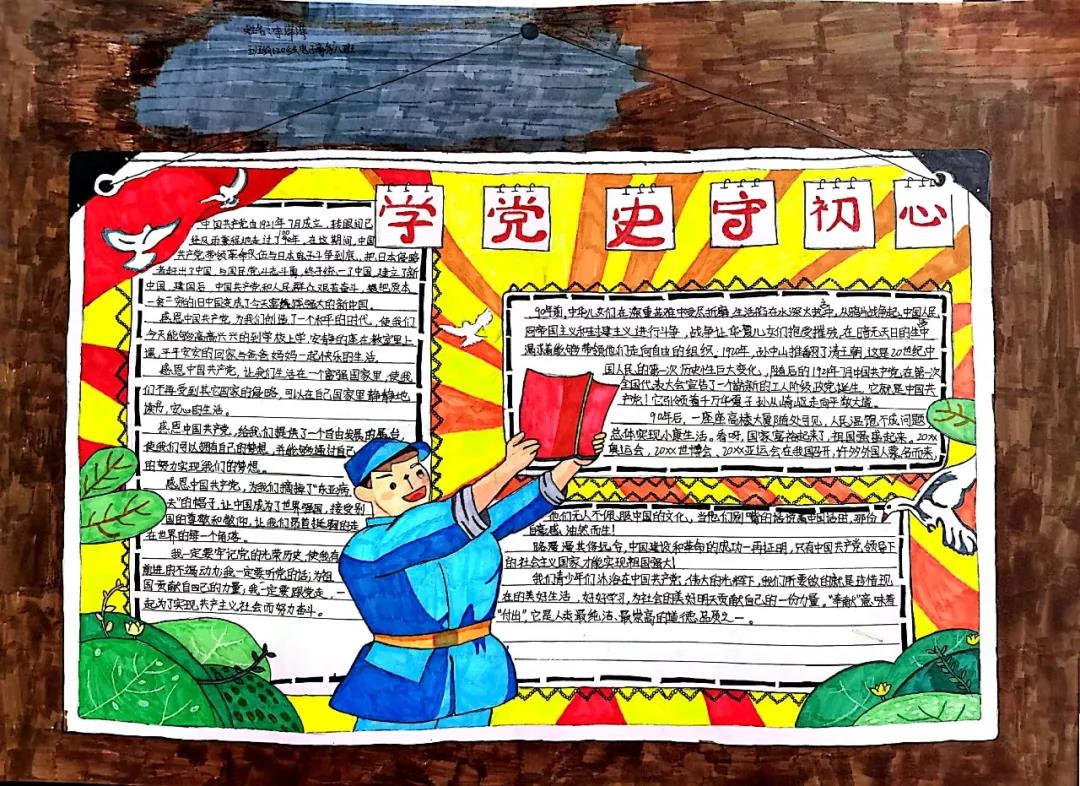 学党史守初心
中国共产党自1921年7月成立,转眼间已
经风雨兼程地走过了100年,在这期间,中国
共产党带领革命队伍与日本鬼子斗争到底,把日本侵略
者赶出了中国,与国民党斗志斗勇,终于统一了中国,建立了新
中国,建国后,中国共产党和人民群众艰苦奋斗,
一贫二穷的旧中国变成了今天富强的新中国。
感恩中国共产党,为我们创造了一个和平的时代,使我们
今天能够高高兴兴的到学校上学,安静的座在教室里上
课,平平安安的回家与爸爸妈妈一起快乐的生活。
感恩中国共产党,让我们生活在一个富强国家里,使我
们不再受到其它国家的侵略,可以在自己国家里静静地
读书,安心的生活。
感恩中国共产党,给我们提供了一个自由发展的舞台,
使我们可以拥有自己的梦想,并能够通过自己
的努力实现我们的梦想。
感恩中国共产党,为我们摘掉了“东亚病
夫”的帽子,让中国成为了世界强国,接受别
国的尊敬和敬仰,让我们昂首挺胸的走
在世界的每一个角落。
我一定要牢记党的光荣历史,使他在
前进的不竭动力;我一定要听党的话,为祖
国贡献自己的力量;我一定要跟党走,一
起为了实现共产主义社会而努力奋斗。
90年前,中华儿女们在深重苦难中受尽折磨,生活陷在水深火热之中,从鸦片战争起,中国人民
同帝国主义和封建主义进行斗争,战争让华夏儿女们饱受摧残,在暗无天日的生平
渴望着能够带领他们走向自由的组织,1920年,孙中山推翻了清王朝,这是20世纪中
国人民的第一次历史性巨大变化,随后的1921年7月中国共产党,在第一次
全国代表大会宣告了一个崭新的工人阶级政党诞生,它就是中国共
产党!它引领着千万华夏子孙从崎岖走向平敞大道。
90年后,一座座高楼大厦随处可见,人民温饱不成问题
总体实现小康生活。看呀,国家富裕起来了,祖国强盛起来。20XX
奥运会,20XX世博会、20XX亚运会在我国召开,许多外国人慕名而来,
他们无人不佩服中国的文化,当他们别嘴的话说着中国话时,那份
自豪感,油然而生!
路漫漫其修远兮,中国建设和革命的成功一再证明,只有中国共产党领导下
的社会主义国家才能实现祖国强大!
我们青少年们沐浴在中国共产党,伟大的光辉下,我们所要做的就是珍惜现
在的美好生活,好好学习,为社会的美好明天贡献自己的一份力量。“奉献”意味着
“付出”,它是人类最纯洁、最崇高的道德品质之一。